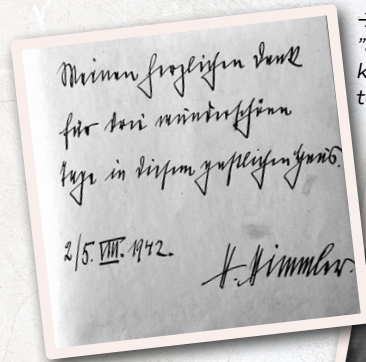 Meinen herzlichen Dank
für drei wunderschöne
Tage in diesem gastlichen Haus.
2/5. VIII. 1942. H. Himmler.